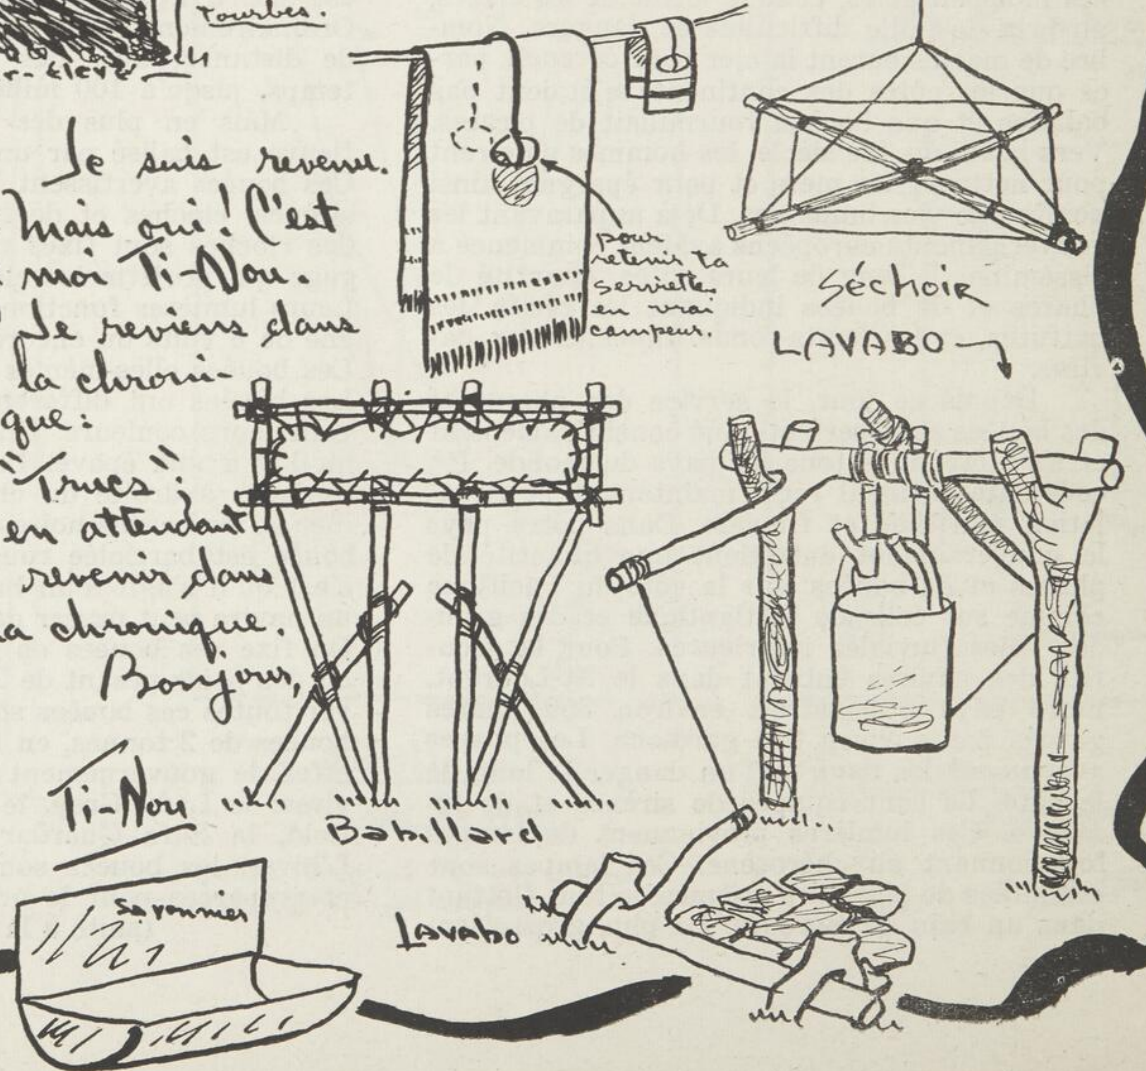 Tourbes.
Je suis revenu.
Mais oui! C'est
moi Ti-Nou
Je reviens dans
la chroni-
que:
"Trucs";
en attendant
revenir dans
la chronique.
Bonjour,
Ti-Nou
pour
retenir ta
serviette.
en vrai
campeur.
SÉCHOIR
LAVABO
Babillard
savonnier
Lavabo